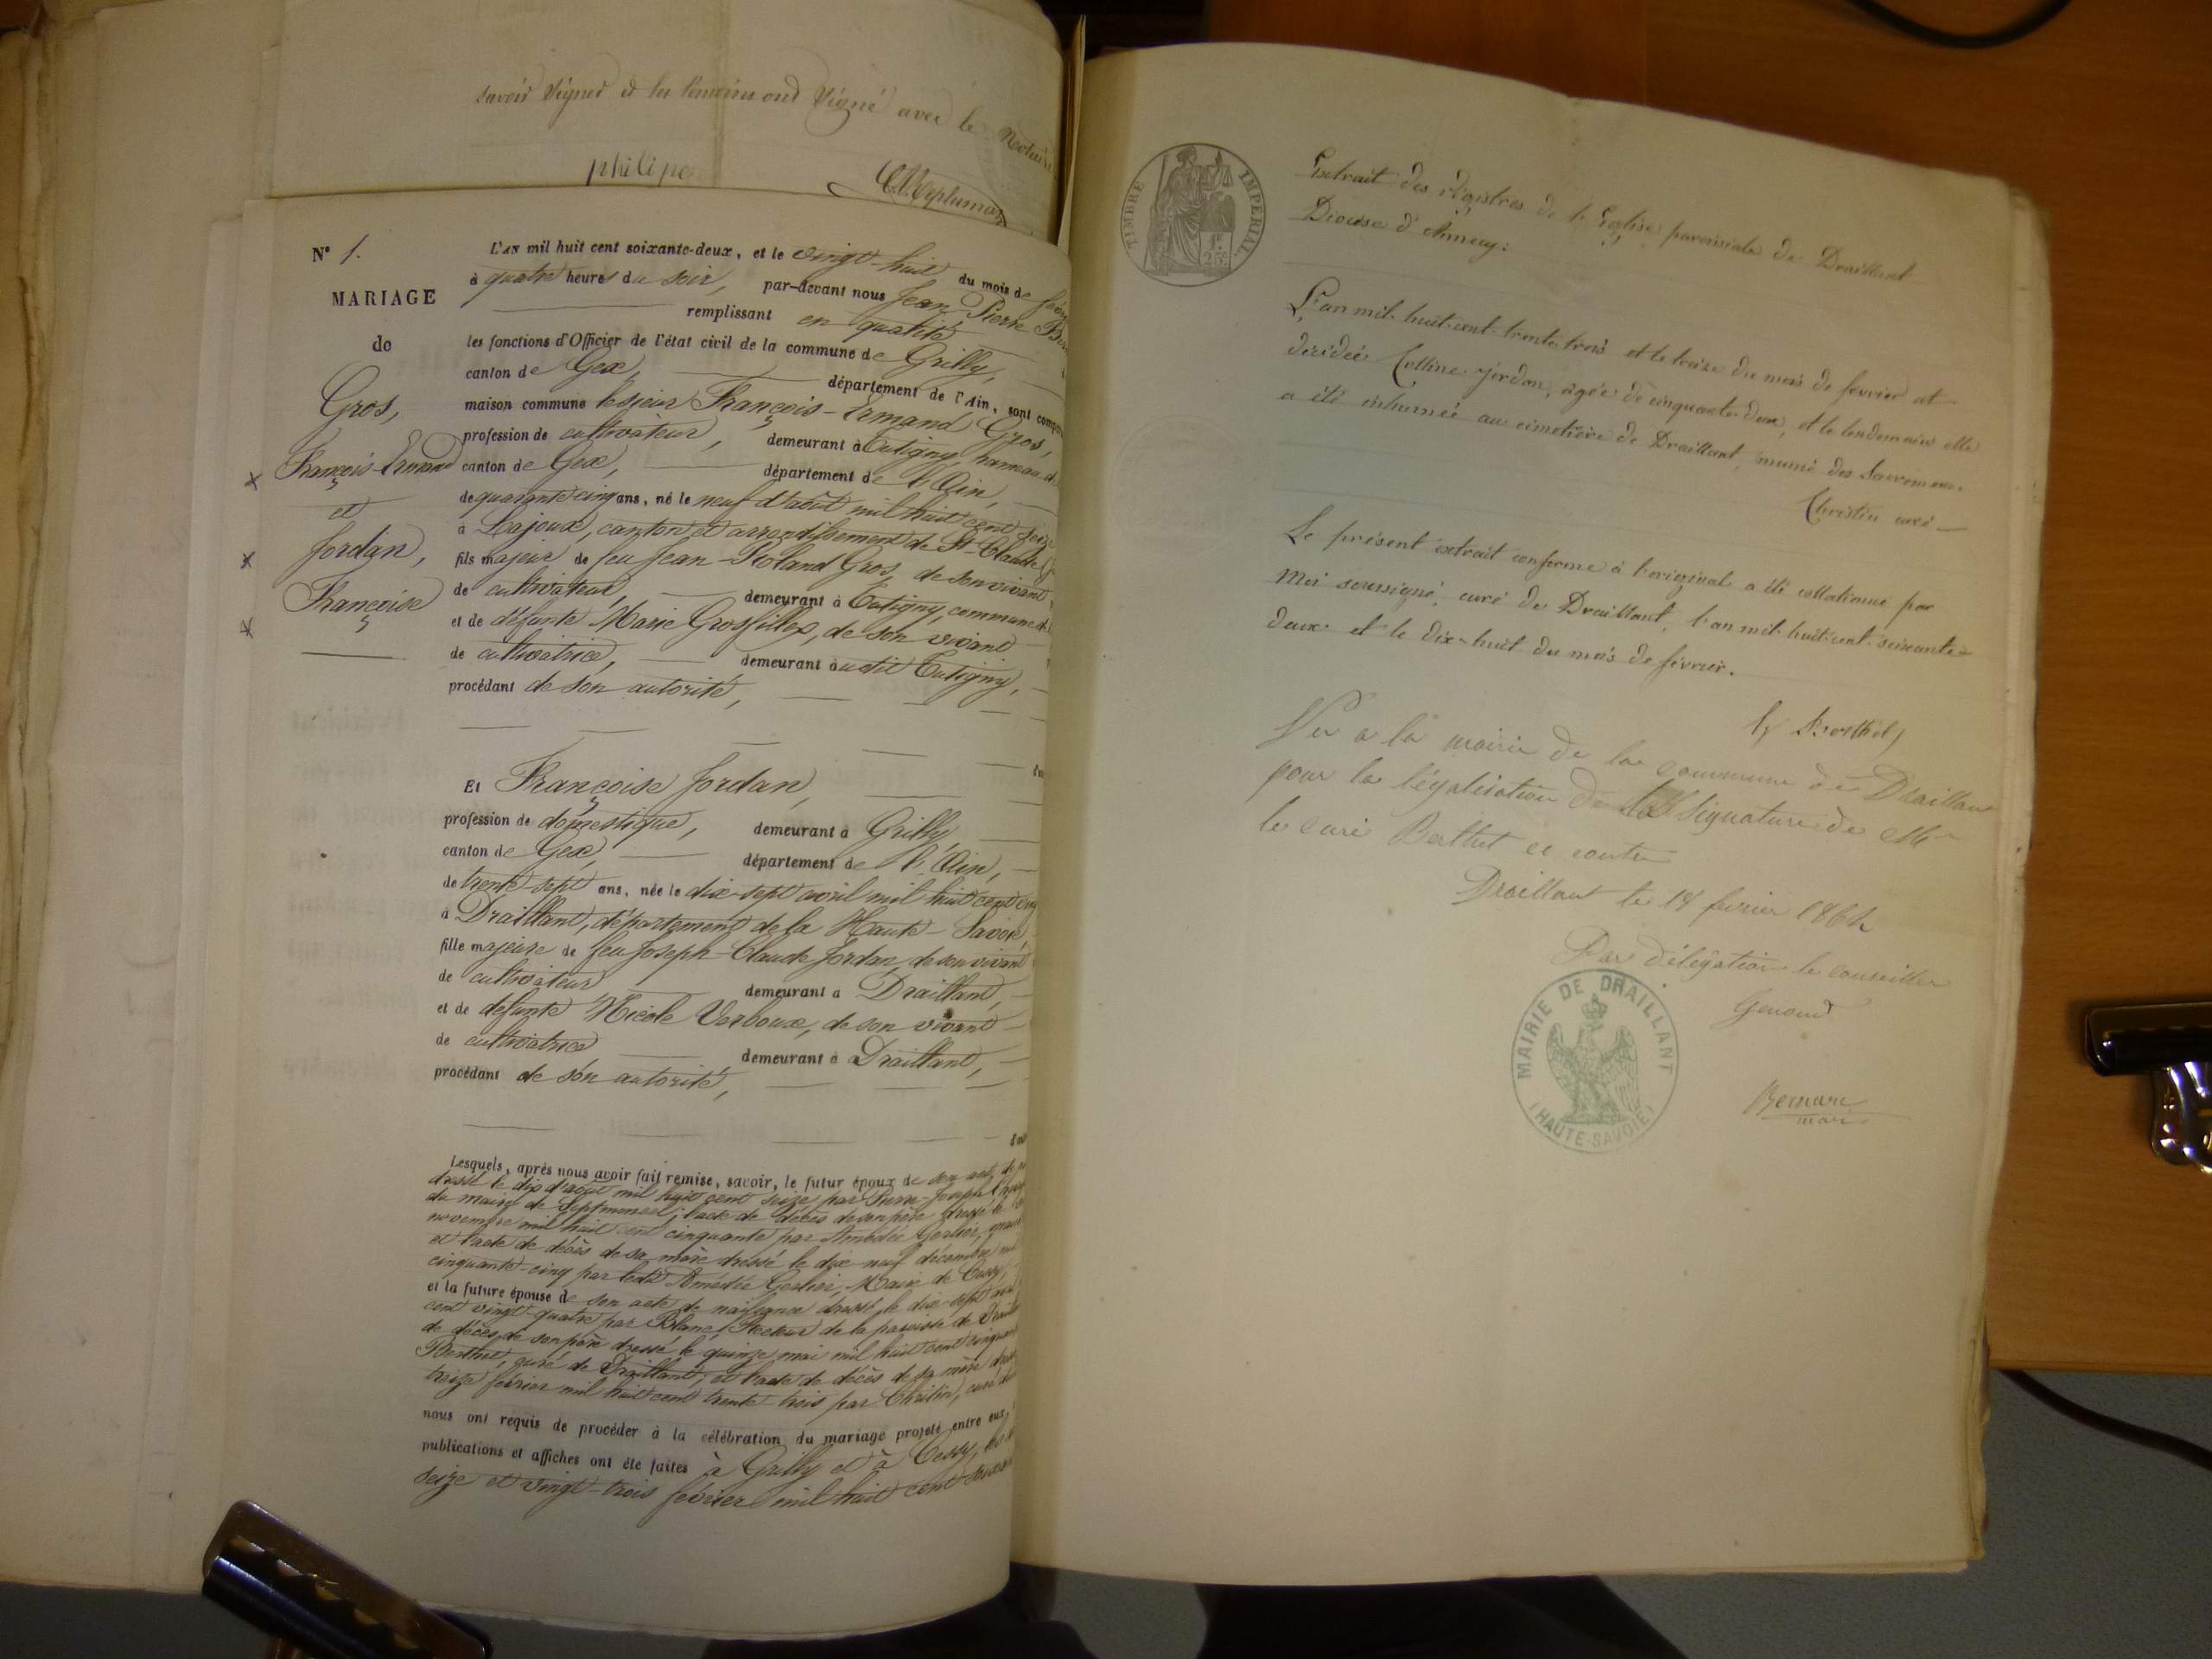 savoir signer et les témoins ont signé avec le Notaire
philipe
N° 1.
MARIAGE
de
Gros,
François-Ermand
et
Jordan,
Françoise
L'AN mil huit cent soixante-deux, et le vingt-huit du mois de
à quatre heures du soir, par-devant nous Jean Pierre
remplissant en qualité
les fonctions d'Officier de l'état civil de la commune de Grilly,
canton de Gex, département de l'Ain, sont
maison commune le sieur François-Ermand Gros,
profession de cultivateur, demeurant à Tutigny, hameau de
canton de Gex, département de l'Ain,
de quarante cinq ans, né le neuf d'août mil huit cent seize
à Lajoux, canton et arrondissement de St-Claude
fils majeur de feu Jean-Roland Gros, de son vivant
de cultivateur, demeurant à Tutigny, commune de
et de défunte Marie Grosfillex, de son vivant
de cultivatrice, demeurant audit Tutigny,
procédant de son autorité,
Et Françoise Jordan,
profession de domestique, demeurant à Grilly,
canton de Gex, département de l'Ain,
de trente sept ans, née le dix-sept avril mil huit cent
à Draillant, département de la Haute-Savoie,
fille majeure de feu Joseph-Claude Jordan, de son vivant
de cultivateur demeurant à Draillant,
et de défunte Nicole Verboux, de son vivant
de cultivatrice demeurant à Draillant,
procédant de son autorité,
Lesquels, après nous avoir fait remise, savoir, le futur époux de son acte de
dressé le dix d'août mil huit cent seize par Pierre-Joseph
du maire de Septmoncel; l'acte de décès de son père dressé le
novembre mil huit cent cinquante par Amédée Gerlier,
et l'acte de décès de sa mère dressé le dix-neuf décembre
cinquante-cinq par ledit Amédée Gerlier, Maire de Cessy,
et la future épouse de son acte de naissance dressé le dix-sept
cent vingt-quatre par Blanc, Recteur de la paroisse de
de décès de son père dressé le quinze mai mil huit cent
Berthet, curé de Draillant; et l'acte de décès de sa mère
treize février mil huit cent trente-trois par Christin, curé
nous ont requis de procéder à la célébration du mariage projeté entre eux,
publications et affiches ont été faites à Grilly et à Cessy,
seize et vingt-trois février mil huit cent
TIMBRE IMPERIAL
1F.
25c.
Extrait des régistres de l'Eglise paroissiale de Draillant
Diocèse d'Annecy:
L'an mil huit cent trente trois et le treize du mois de février est
décédée Colline Jordan, agée de cinquante deux, et le lendemain elle
a été inhumée au cimetière de Draillant, munie des Sacremens.
Christin curé
Le présent extrait conforme à l'original a été collationné par
Moi soussigné, curé de Draillant, l'an mil huit cent soixante
deux et le dix-huit du mois de février.
Berthet
Vu a la mairie de la commune de Draillant
pour la légalisation de la Signature de Mr
le curé Berthet ce contre
Draillant le 18 fevrier 1862
Par délégation le conseiller
Genoud
MAIRIE DE DRAILLANT
(HAUTE-SAVOIE)